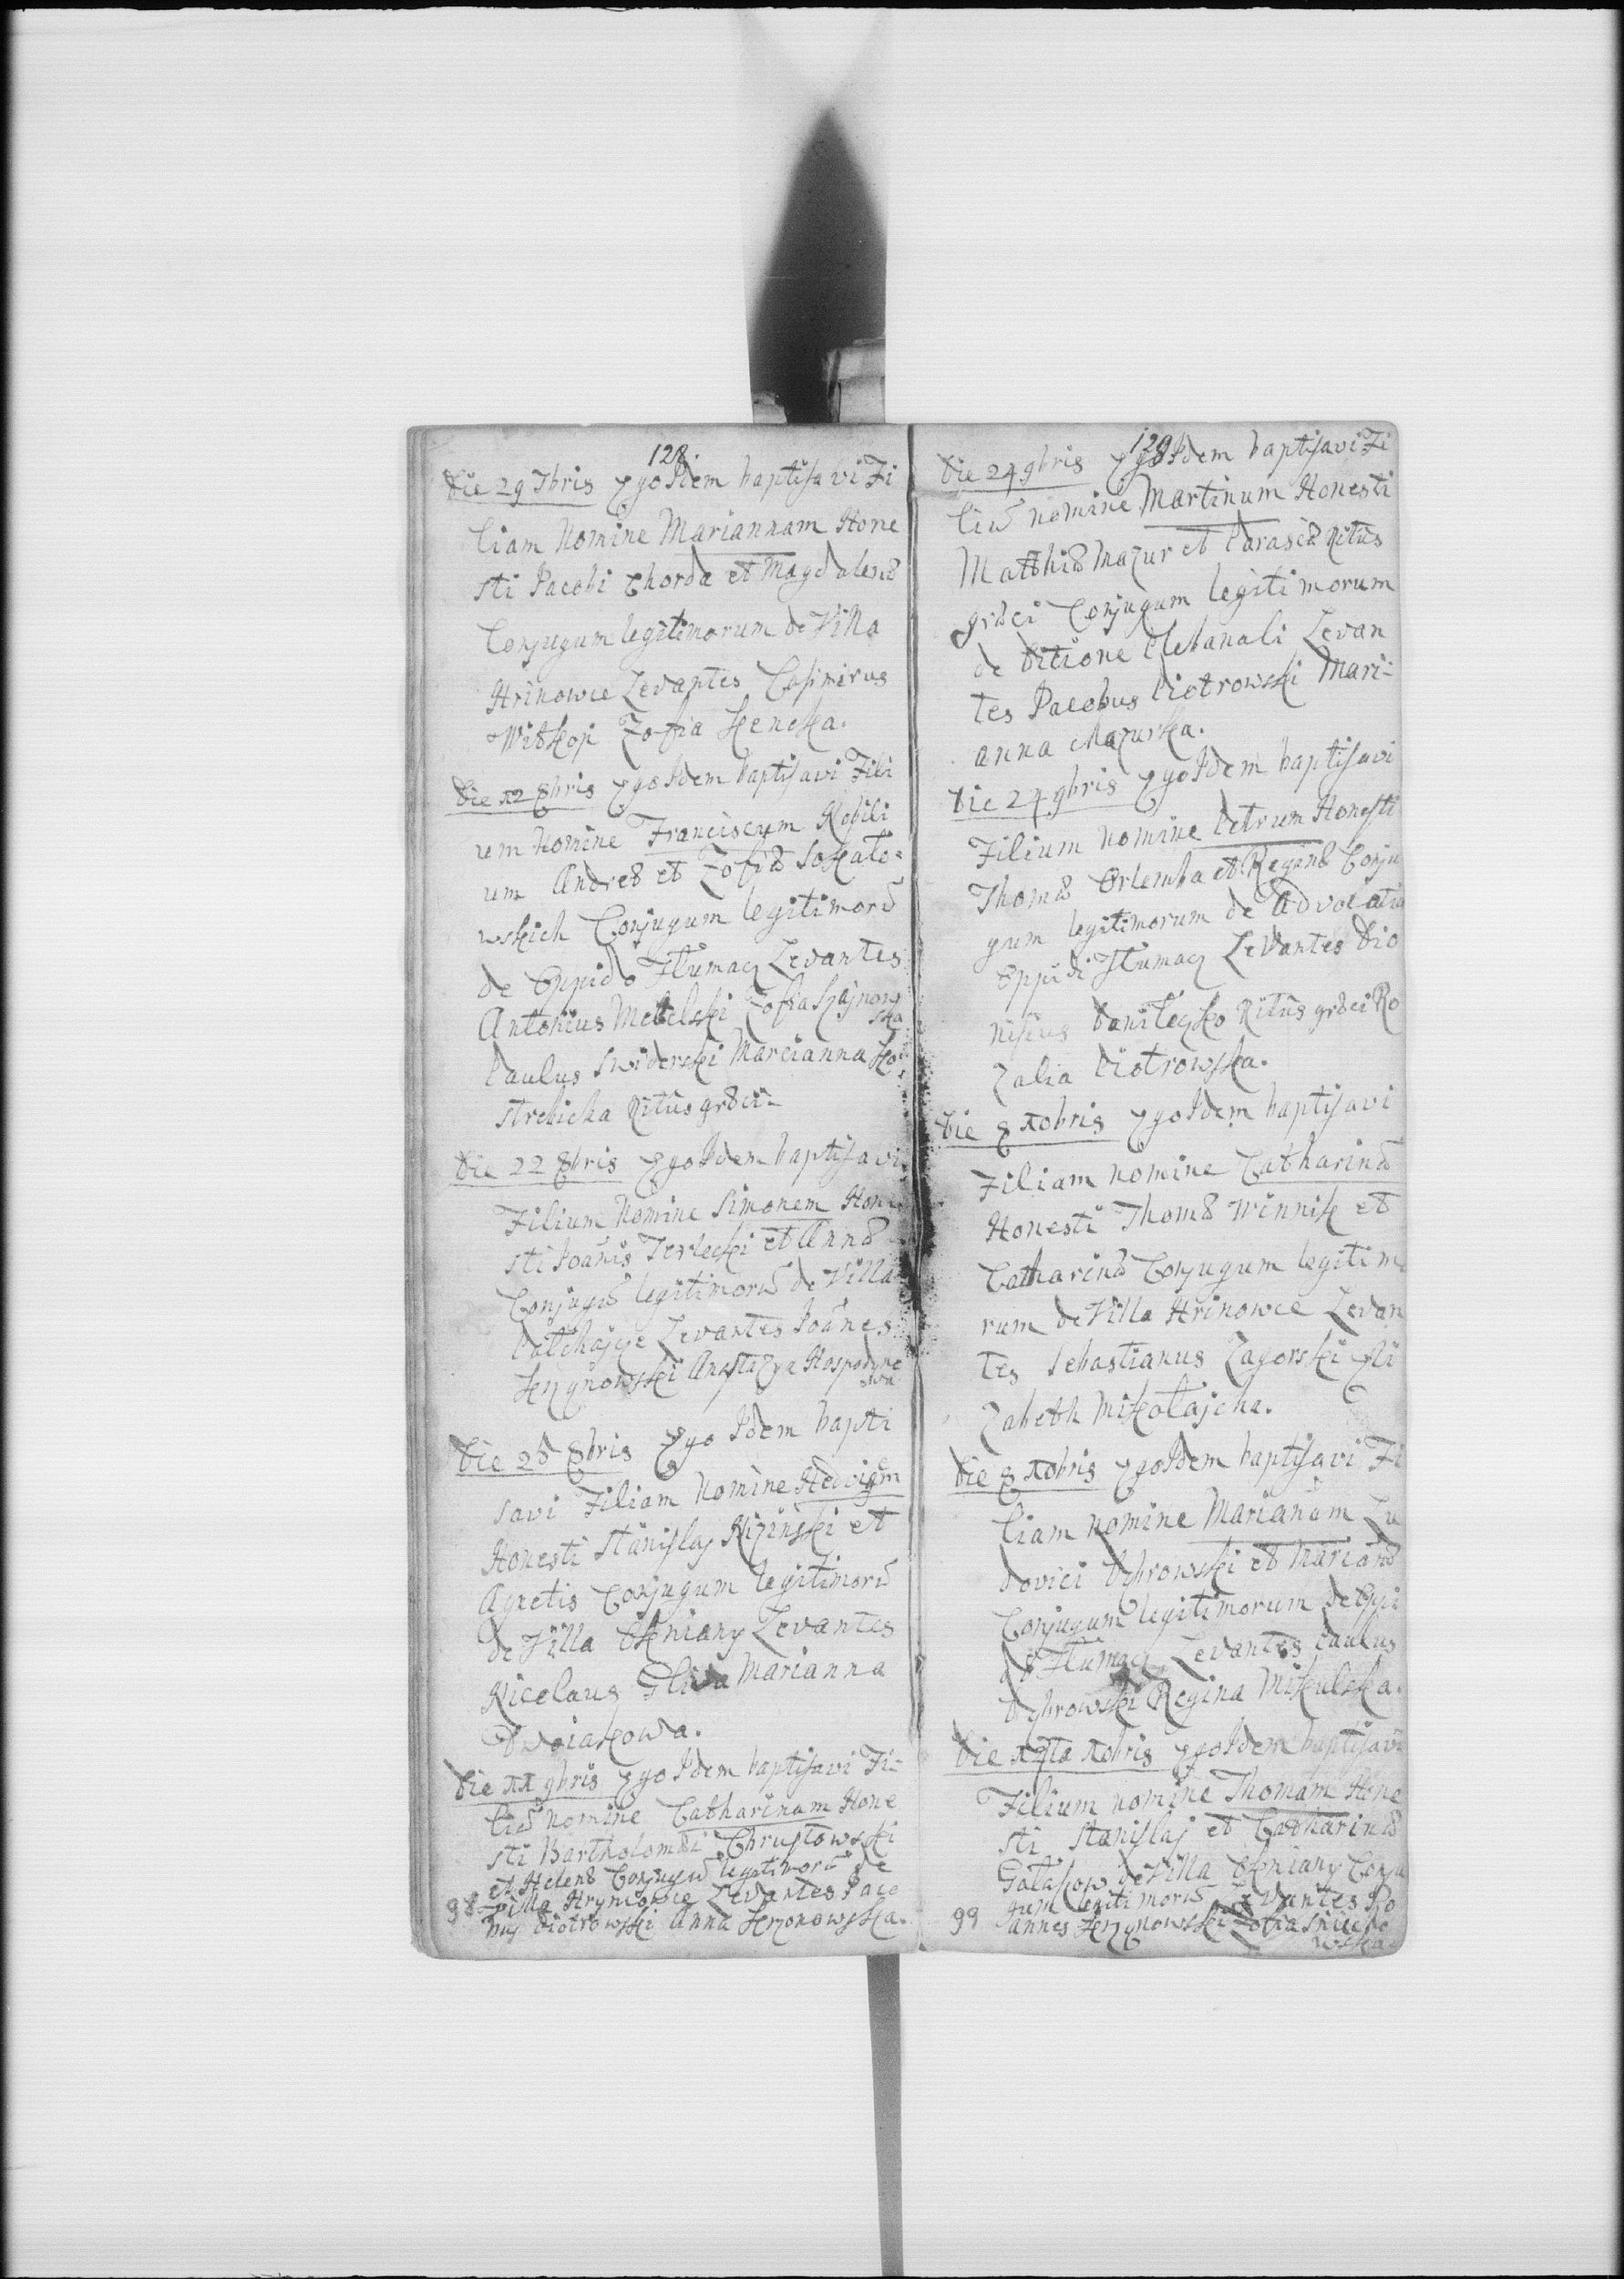 128.
Die 29 7bris Ego Idem baptisavi Fi
liam Nomine Mariannam Hone
sti Jacobi Chorda et Magdalenæ
Conjugum legitimorum de Villa
Hrinowce Levantes Casimirus
Zofia
Die 12 8bris Ego Idem baptisavi Fili
um Nomine Franciscum Nobili
um Andreæ et Zofiæ Sokało=
wskich Conjugum legitimorū
de Oppido Tłumacz Levantes
Antonius Metelski Zofia
Paulus Swiderski Marcianna Ko
strebicka Ritus græci
Die 22 8bris Ego Idem baptisavi
Filium Nomine Simonem Hone
sti Joānis Terlecki et Annæ
Conjugū legitimorū de Villa
Levantes Joānes
Jerzynowski Anastazya Hospodyno
wa
Die 25 8bris Ego Idem bapti
savi Filiam Nomine Hedvigem
Honesti Stanislaj Nizinski et
Agnetis Conjugum legitimorū
de Villa Okniany Levantes
Nicolaus Gliwa Marianna
Dwoiakowa.
Die 11 9bris Ego Idem baptisavi Fi=
liā nomine Catharinam Hone
sti Bartholomæi Chrustowski
et Helenæ Conjugū legitimorū de
villa Hryniowce Levantes Jaco
98 bus Piotrowski Anna Jerzonowska.
129
Die 24 9bris Ego Idem baptisavi Fi
liū nomine Martinum Honesti
Matthiæ Mazur et Parasiæ Ritus
græci Conjugum legitimorum
de Ditione Plebanali Levan
tes Jacobus Piotrowski Mari=
anna Mazurka.
Die 24 9bris Ego Idem baptisavi
Filium nomine Petrum Honesti
Thomæ Orlemba et Reginæ Conju
gum legitimorum de Advocatia
Oppidi Tłumacz Levantes Dio
nisius Danileczko Ritus græci Ro
zalia Piotrowska.
Die 8 Xbris Ego Idem baptisavi
Filiam nomine Catharinā
Honesti Thomæ Winnik et
Catharinæ Conjugum legitimo
rum de Villa Hrinowce Levan
tes Sebastianus Zagorski Eli
zabeth Mikołajcha.
Die 8 Xbris Ego Idem baptisavi Fi
liam nomine Marianam Lu
dovici Dybrowski et Marianæ
Conjugum legitimorum de Opi
do Tłumacz Levantes Paulus
Dybrowski Regina Mikulska.
Die Xbris Ego Idem baptisavi
Filium nomine Thomam Hone
sti Stanislaj et Catharinæ
Gałaskow de Villa Okniany Conju
gum legitimorū Levantes Jo
99 annes Jerzynowski Zofia
wska